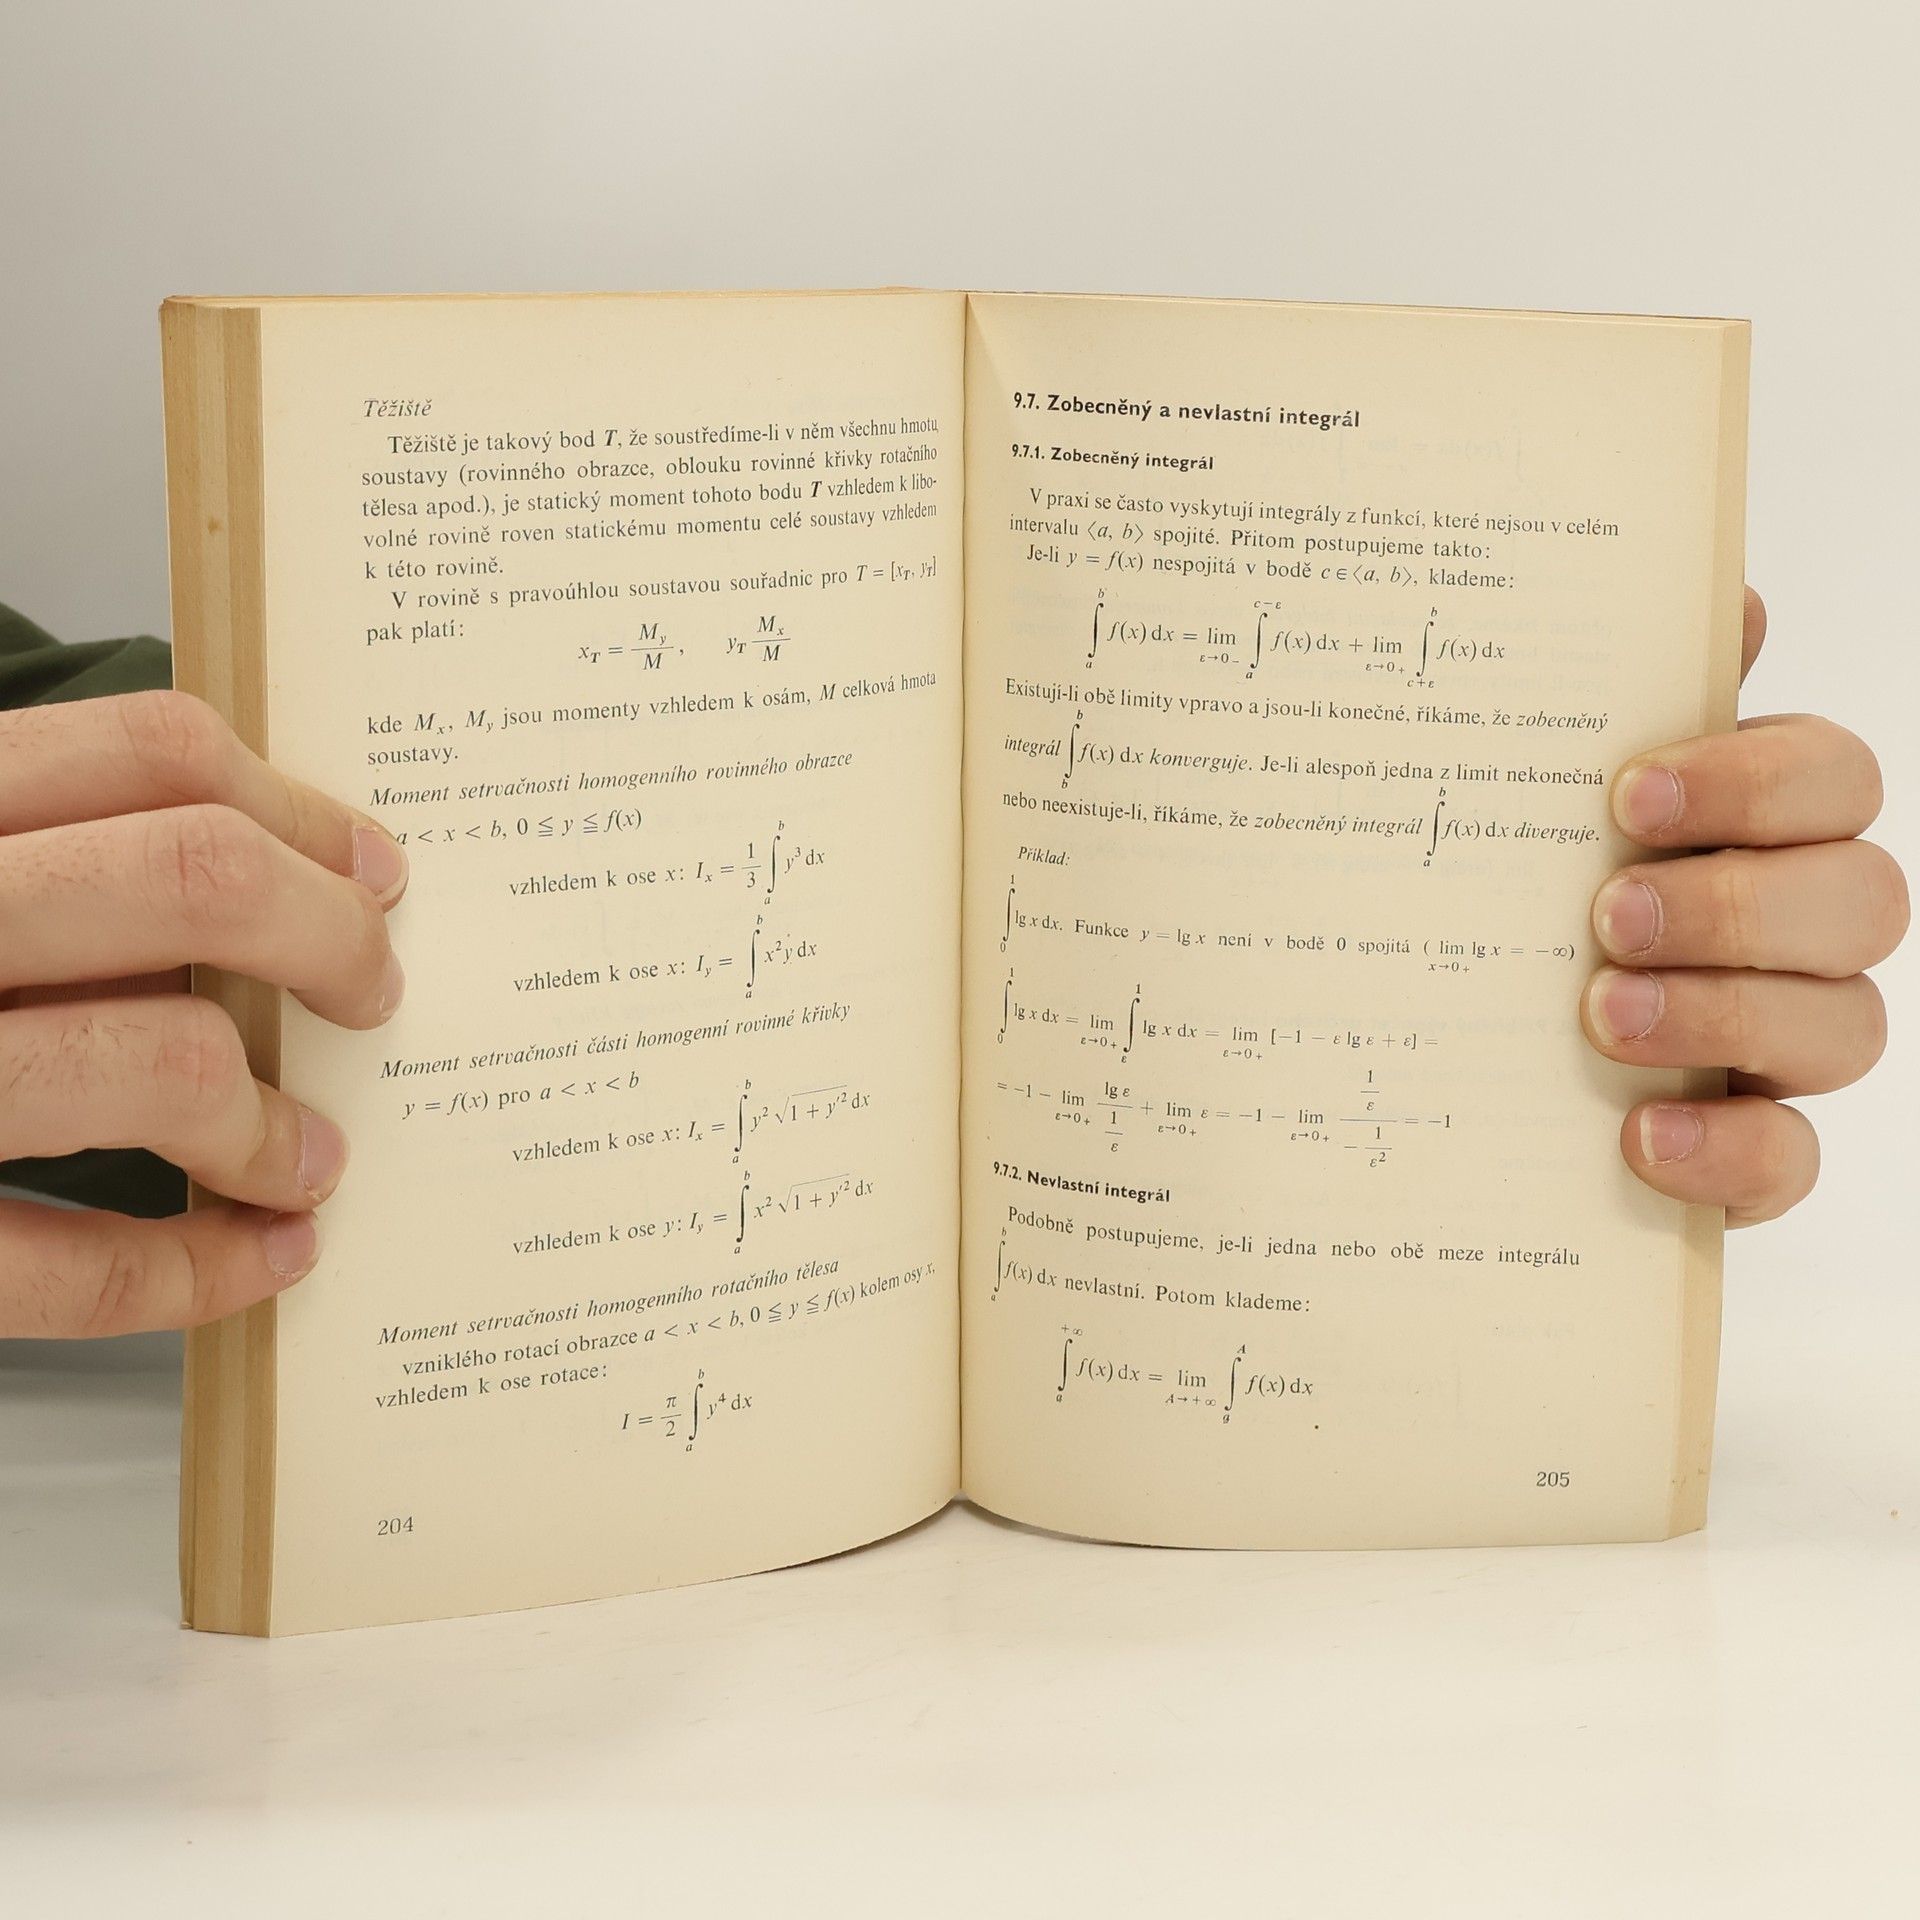 Těžiště
Těžiště je takový bod T, že soustředíme-li v něm všechnu hmotu
soustavy (rovinného obrazce, oblouku rovinné křivky rotačního
tělesa apod.), je statický moment tohoto bodu T vzhledem k libo-
volné rovině roven statickému momentu celé soustavy vzhledem
k této rovině.
V rovině s pravoúhlou soustavou souřadnic pro T = [x_T, y_T]
pak platí:
x_T = M_y / M , y_T M_x / M
kde M_x, M_y jsou momenty vzhledem k osám, M celková hmota
soustavy.
Moment setrvačnosti homogenního rovinného obrazce
a < x < b, 0 ≦ y ≦ f(x)
vzhledem k ose x: I_x = 1/3 ∫_a^b y³ dx
vzhledem k ose x: I_y = ∫_a^b x² y dx
Moment setrvačnosti části homogenní rovinné křivky
y = f(x) pro a < x < b
vzhledem k ose x: I_x = ∫_a^b y² √(1 + y'²) dx
vzhledem k ose y: I_y = ∫_a^b x² √(1 + y'²) dx
Moment setrvačnosti homogenního rotačního tělesa
vzniklého rotací obrazce a < x < b, 0 ≦ y ≦ f(x) kolem osy x,
vzhledem k ose rotace:
I = π/2 ∫_a^b y⁴ dx
204
9.7. Zobecněný a nevlastní integrál
9.7.1. Zobecněný integrál
V praxi se často vyskytují integrály z funkcí, které nejsou v celém
intervalu ⟨a, b⟩ spojité. Přitom postupujeme takto:
Je-li y = f(x) nespojitá v bodě c∈⟨a, b⟩, klademe:
∫_a^b f(x) dx = lim_{ε→0−} ∫_a^{c−ε} f(x) dx + lim_{ε→0+} ∫_{c+ε}^b f(x) dx
Existují-li obě limity vpravo a jsou-li konečné, říkáme, že zobecněný
integrál ∫_b^b f(x) dx konverguje. Je-li alespoň jedna z limit nekonečná
nebo neexistuje-li, říkáme, že zobecněný integrál ∫_a^b f(x) dx diverguje.
Příklad:
∫_0^1 lg x dx. Funkce y = lg x není v bodě 0 spojitá ( lim_{x→0+} lg x = −∞)
∫_0^1 lg x dx = lim_{ε→0+} ∫_ε^1 lg x dx = lim_{ε→0+} [−1 − ε lg ε + ε] =
= −1 − lim_{ε→0+} lg ε / (1/ε) + lim_{ε→0+} ε = −1 − lim_{ε→0+} (1/ε) / (−1/ε²) = −1
9.7.2. Nevlastní integrál
Podobně postupujeme, je-li jedna nebo obě meze integrálu
∫_a^b f(x) dx nevlastní. Potom klademe:
∫_a^{+∞} f(x) dx = lim_{A→+∞} ∫_a^A f(x) dx
205